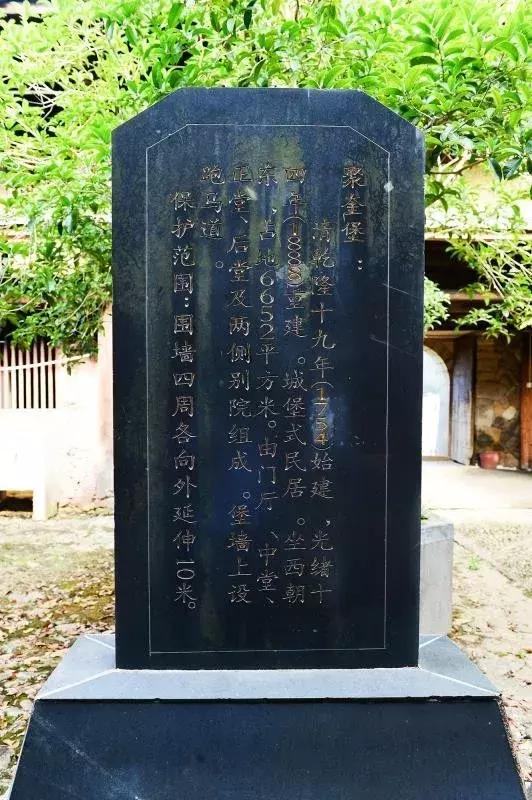 聚奎堡：
清乾隆十九年(1754)始建，光绪十
四年(1888)重建。城堡式民居。坐西朝
东，占地6652平方米。由门厅、中堂、
正堂、后堂及两侧别院组成。堡墙上设
跑马道。
保护范围：围墙四周各向外延伸10米。